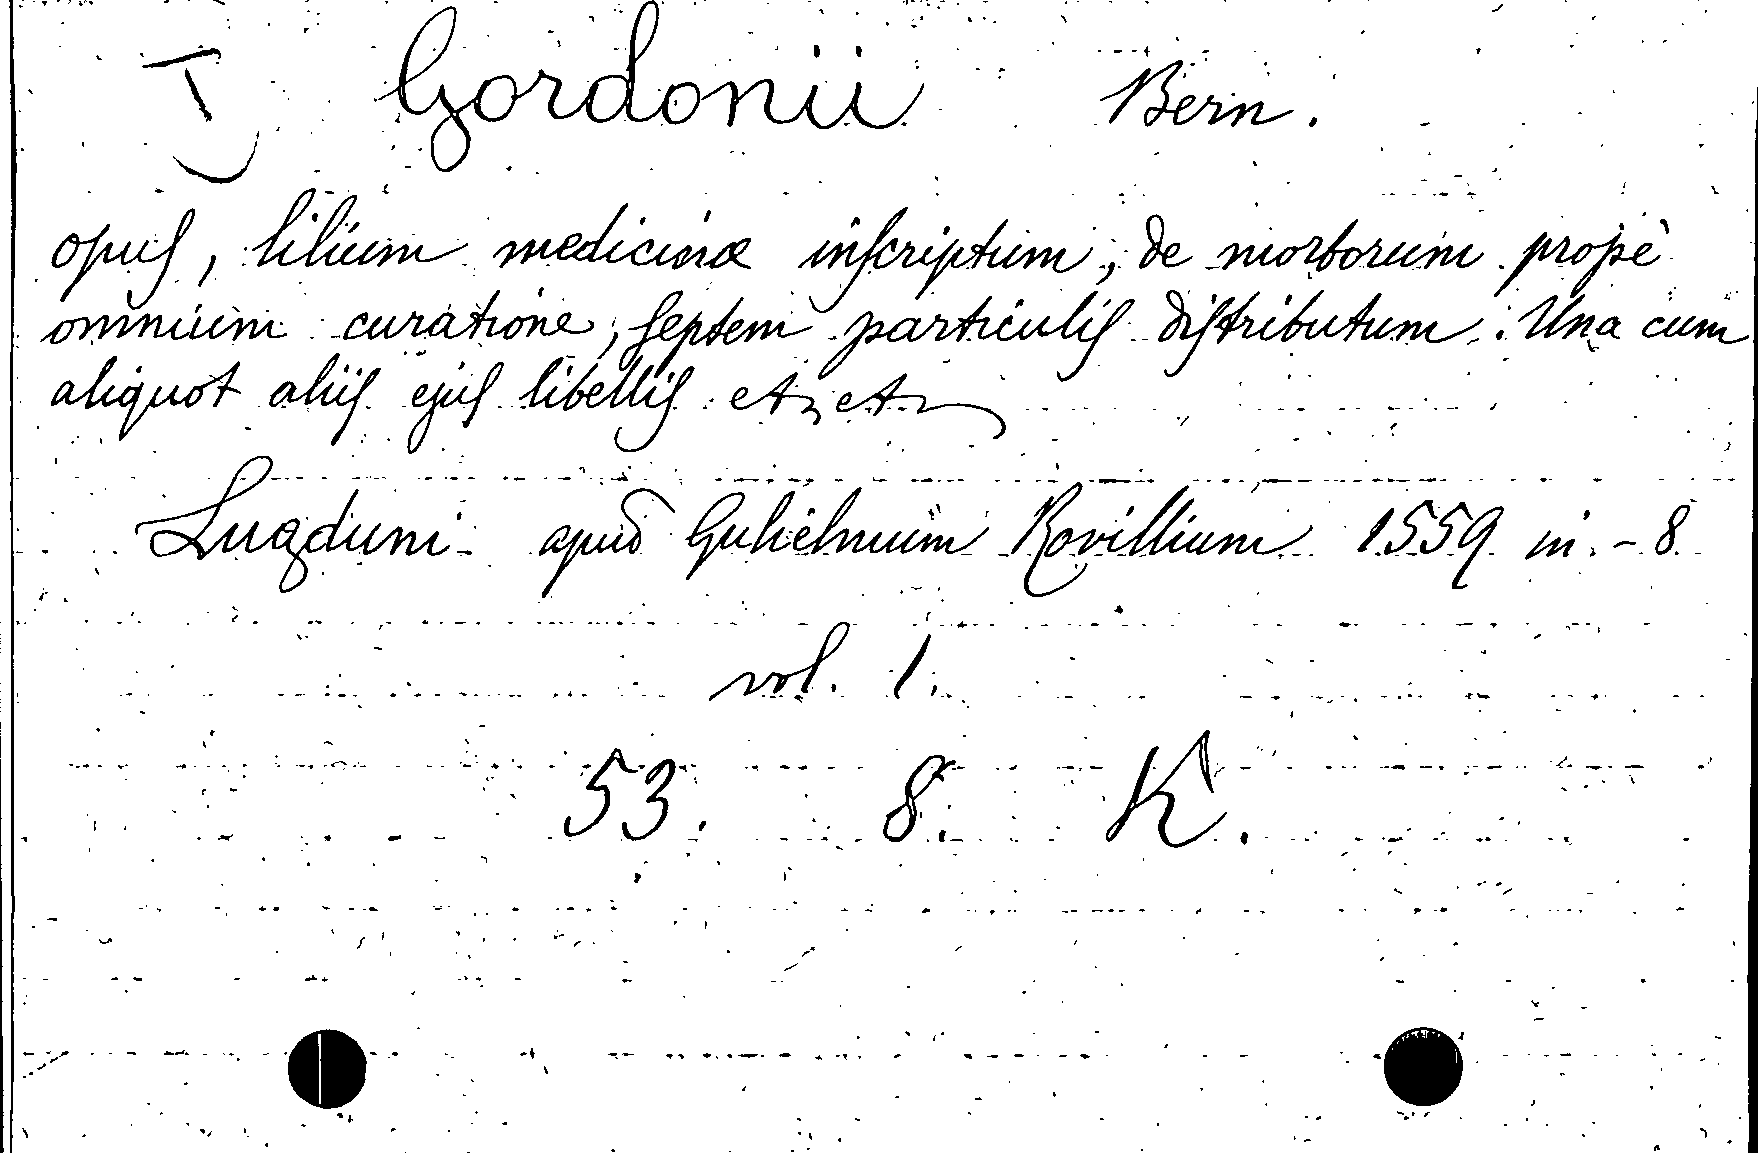 Gordonii Bern.
opuſ, lilium medicinæ inſcriptum, de morborum propè
omnium curatione, ſeptem particuliſ diſtributum. Una cum
aliquot aliiſ ejuſ libelliſ etc etc
Lugduni apud Gulielmum Rovillium 1559 in-8
vol. 1.
53. 8. K.